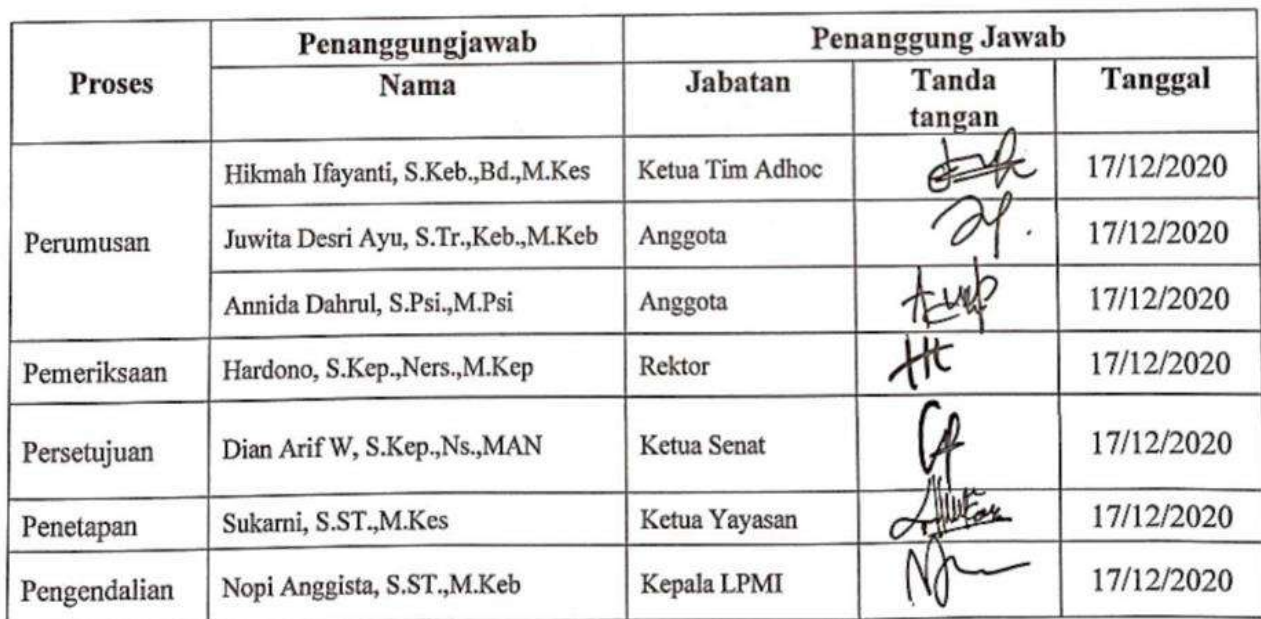 Proses
Penanggungjawab
Penanggung Jawab
Nama
Jabatan
Tanda
tangan
Tanggal
Perumusan
Hikmah Ifayanti, S.Keb.,Bd.,M.Kes
Ketua Tim Adhoc
17/12/2020
Juwita Desri Ayu, S.Tr.,Keb.,M.Keb
Anggota
17/12/2020
Annida Dahrul, S.Psi.,M.Psi
Anggota
17/12/2020
Pemeriksaan
Hardono, S.Kep.,Ners.,M.Kep
Rektor
17/12/2020
Persetujuan
Dian Arif W, S.Kep.,Ns.,MAN
Ketua Senat
17/12/2020
Penetapan
Sukarni, S.ST.,M.Kes
Ketua Yayasan
17/12/2020
Pengendalian
Nopi Anggista, S.ST.,M.Keb
Kepala LPMI
17/12/2020